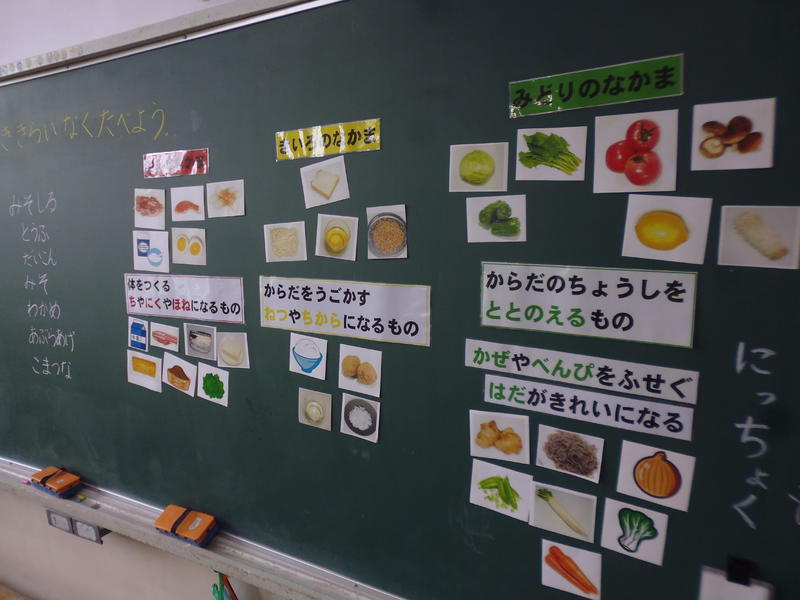 きらいなくたべよう.
みそしる
とうふ
だいこん
みそ
わかめ
あぶらあげ
こまつな
きいろのなかま
みどりのなかま
体をつくる
ちやにくやほねになるもの
からだをうごかす
ねつやちからになるもの
からだのちょうしを
ととのえるもの
かぜやべんぴをふせぐ
はだがきれいになる
にっちょく